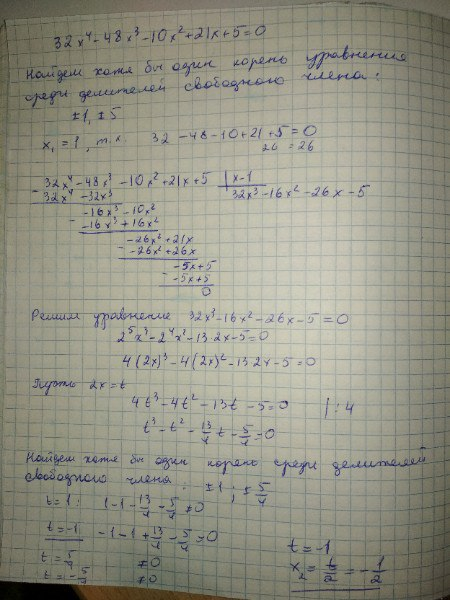 32x⁴-48x³-10x²+21x+5=0
Найдем хотя бы один корень уравнения
среди делителей свободного члена:
±1, ±5
x₁=1, т.к. 32-48-10+21+5=0
26=26
- 32x⁴-48x³-10x²+21x+5 | x-1
32x⁴-32x³ 32x³-16x²-26x-5
- -16x³-10x²
-16x³+16x²
- -26x²+21x
-26x²+26x
- -5x+5
-5x+5
0
Решим уравнение 32x³-16x²-26x-5=0
2⁵x³-2⁴x²-13·2x-5=0
4(2x)³-4(2x)²-13·2x-5=0
Пусть 2x=t
4t³-4t²-13t-5=0 |:4
t³-t²-13/4 t-5/4=0
Найдем хотя бы один корень среди делителей
свободного члена: ±1; ±5/4
t=1: 1-1-13/4-5/4≠0
t=-1 -1-1+13/4-5/4=0
t=5/4 ≠0
t=-5/4 ≠0
t=-1
x₂=t/2=-1/2